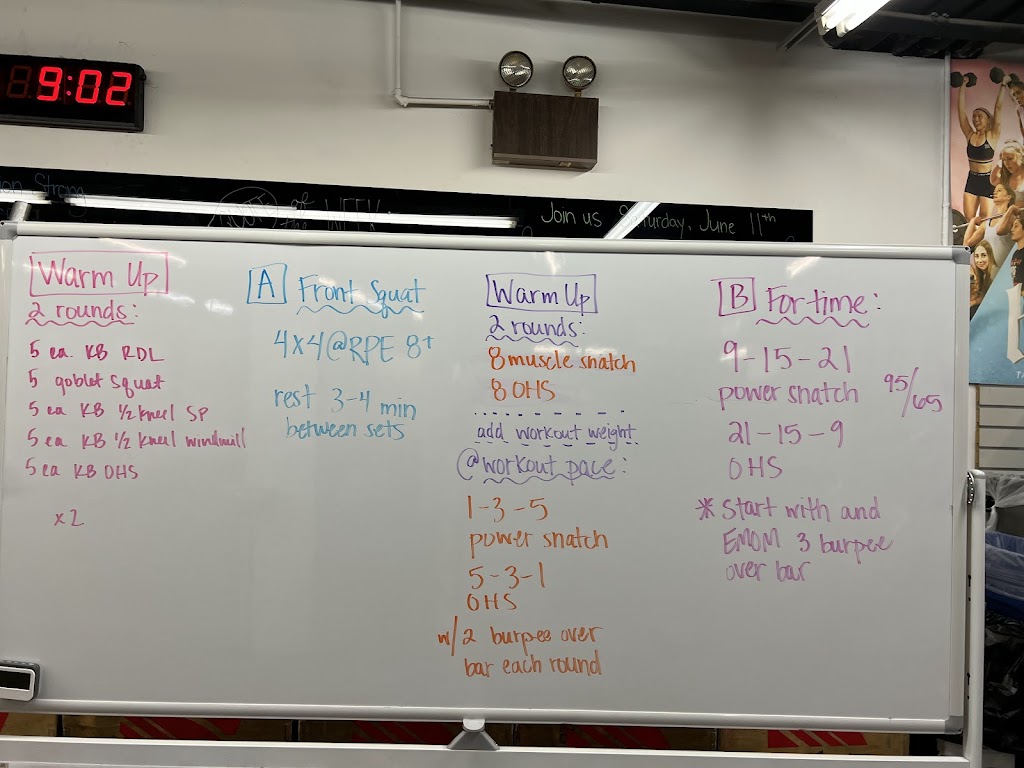 9:02
Strong
WEEK
Join us Saturday, June 11th
Warm Up
2 rounds:
5 ea. KB RDL
5 goblet squat
5 ea KB 1/2 kneel SP
5 ea KB 1/2 kneel windmill
5 ea KB OHS
x2
A Front Squat
4x4 @ RPE 8+
rest 3-4 min
between sets
Warm Up
2 rounds:
8 muscle snatch
8 OHS
add workout weight
@workout pace:
1-3-5
power snatch
5-3-1
OHS
w/ 2 burpee over
bar each round
B For time:
9-15-21
power snatch 95/65
21-15-9
OHS
* Start with and
EMOM 3 burpee
over bar